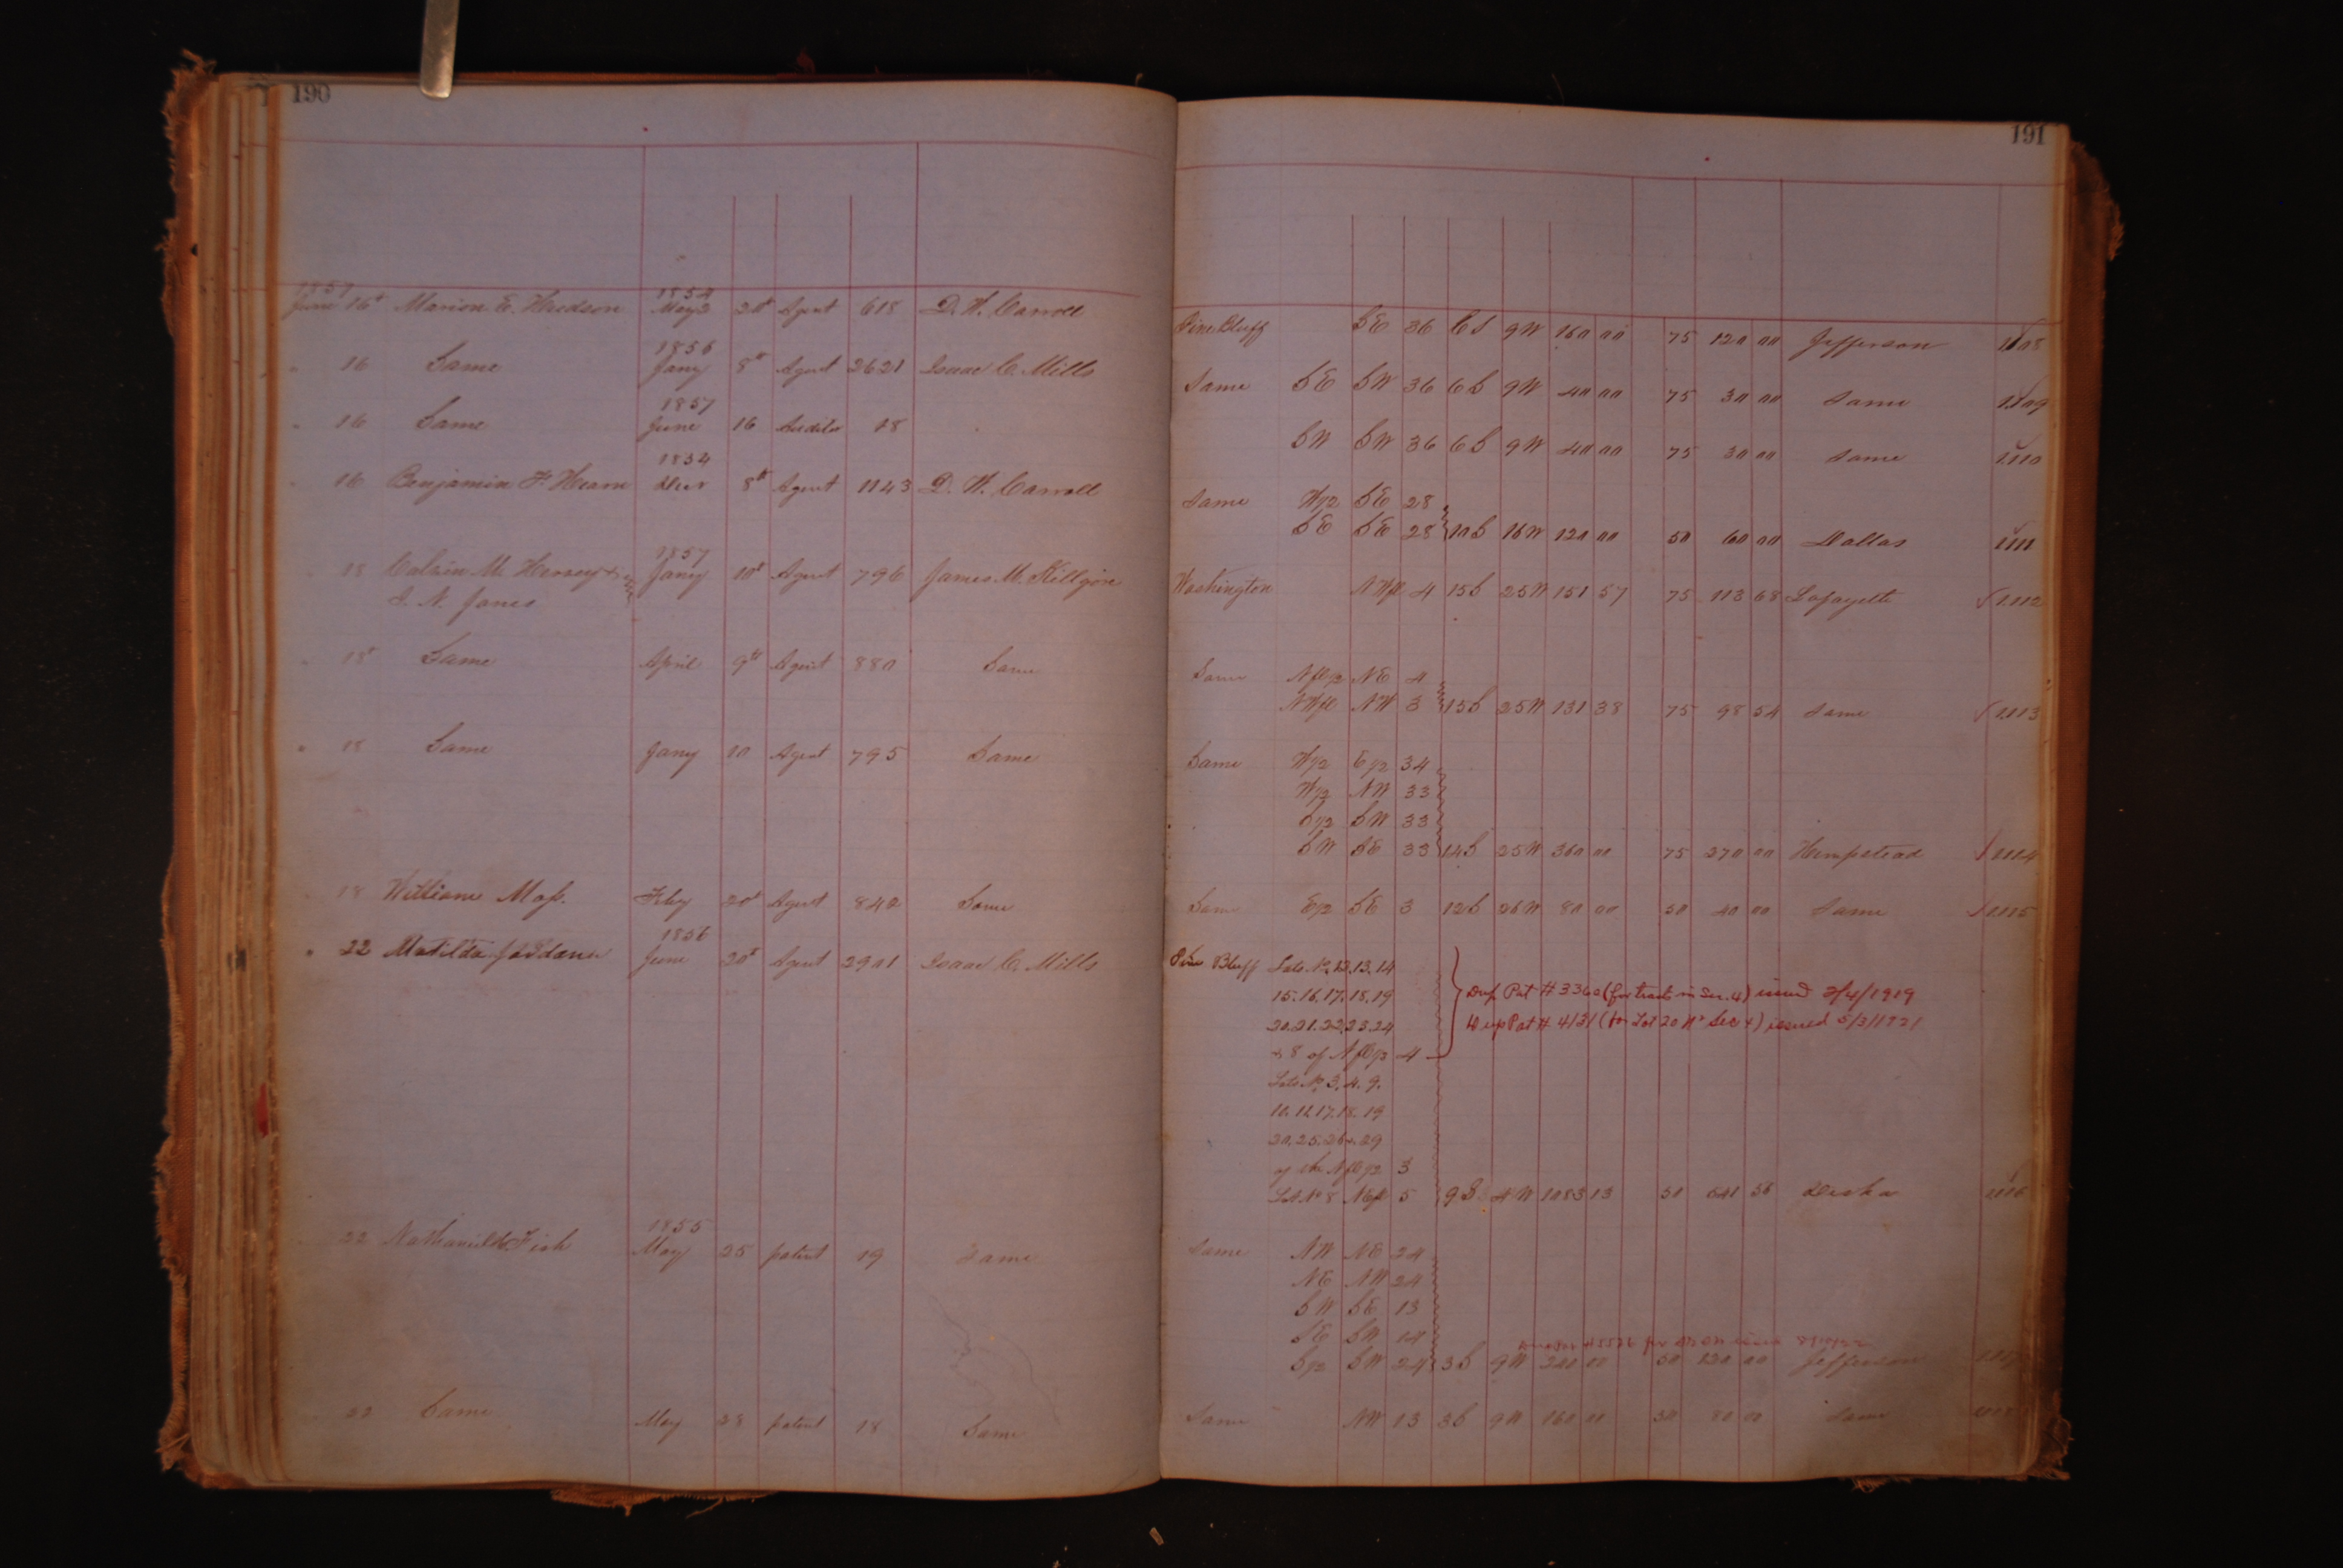 190
1857 1854
June 16t Marion E. Hudson May 2 2d Agent 618 D. W. Carroll
1856
" 16 Same Jany 8th Agent 2621 Isaac C. Mills
1857
" 16 Same June 16 Auditor 18
1854
" 16 Benjamin F. Hearn Decr 8th Agent 1143 D. W. Carroll
1857
18 Calvin M. Hervey & Jany 10t Agent 796 James M. Killgore
I. N. Jones
" 18t Same April 9th Agent 880 Same
" 18 Same Jany 10 Agent 795 Same
18 William Moss. Feby 20t Agent 842 Same
1856
" 22 Matilda Jordan June 20t Agent 2901 Isaac C. Mills
1855
22 Nathaniel Fish May 25 patent 19 Same
22 Same May 28 patent 18 Same
191
Pine Bluff SE 36 6S 9W 160 00 75 120 00 Jefferson 1108
Same SE SW 36 6S 9W 40 00 75 30 00 Same 1109
SW SW 36 6S 9W 40 00 75 30 00 Same 1110
Same W1/2 SE 28
SE SE 28 10S 16W 120 00 50 60 00 Dallas 1111
Washington NWfl 4 15S 25W 151 57 75 113 68 Lafayette 1112
Same Nfl1/2 NE 4
NWfl NW 3 15S 25W 131 38 75 98 54 Same 1113
Same W1/2 E1/2 34
W1/2 NW 33
S1/2 SW 33
SW SE 33 14S 25W 360 00 75 270 00 Hempstead 1114
Same E1/2 SE 3 12S 26W 80 00 50 40 00 Same 1115
Pine Bluff Lots No. 12.13.14
15.16.17.18.19 Dup Pat # 3360 (for tracts in Sec. 4) issued 2/4/1919
20.21.22.23.24 Dup Pat # 4131 (for Lot 20 N2 Sec 4) issued 5/3/1921
& 8 of Nfl1/2 4
Lots No. 3.4.9.
10.12.17.18.19
20.25.26.29
of the Nfl1/2 3
Lot No 8 NEfl 5 9S 4W 1083 13 50 541 56 Desha 1116
Same NW NE 24
NE NW 24
SW SE 13
SE SW 14
S1/2 SW 24 3S 9W 240 00 50 120 00 Jefferson 1117
Same NW 13 3S 9W 160 00 50 80 00 Same 1118